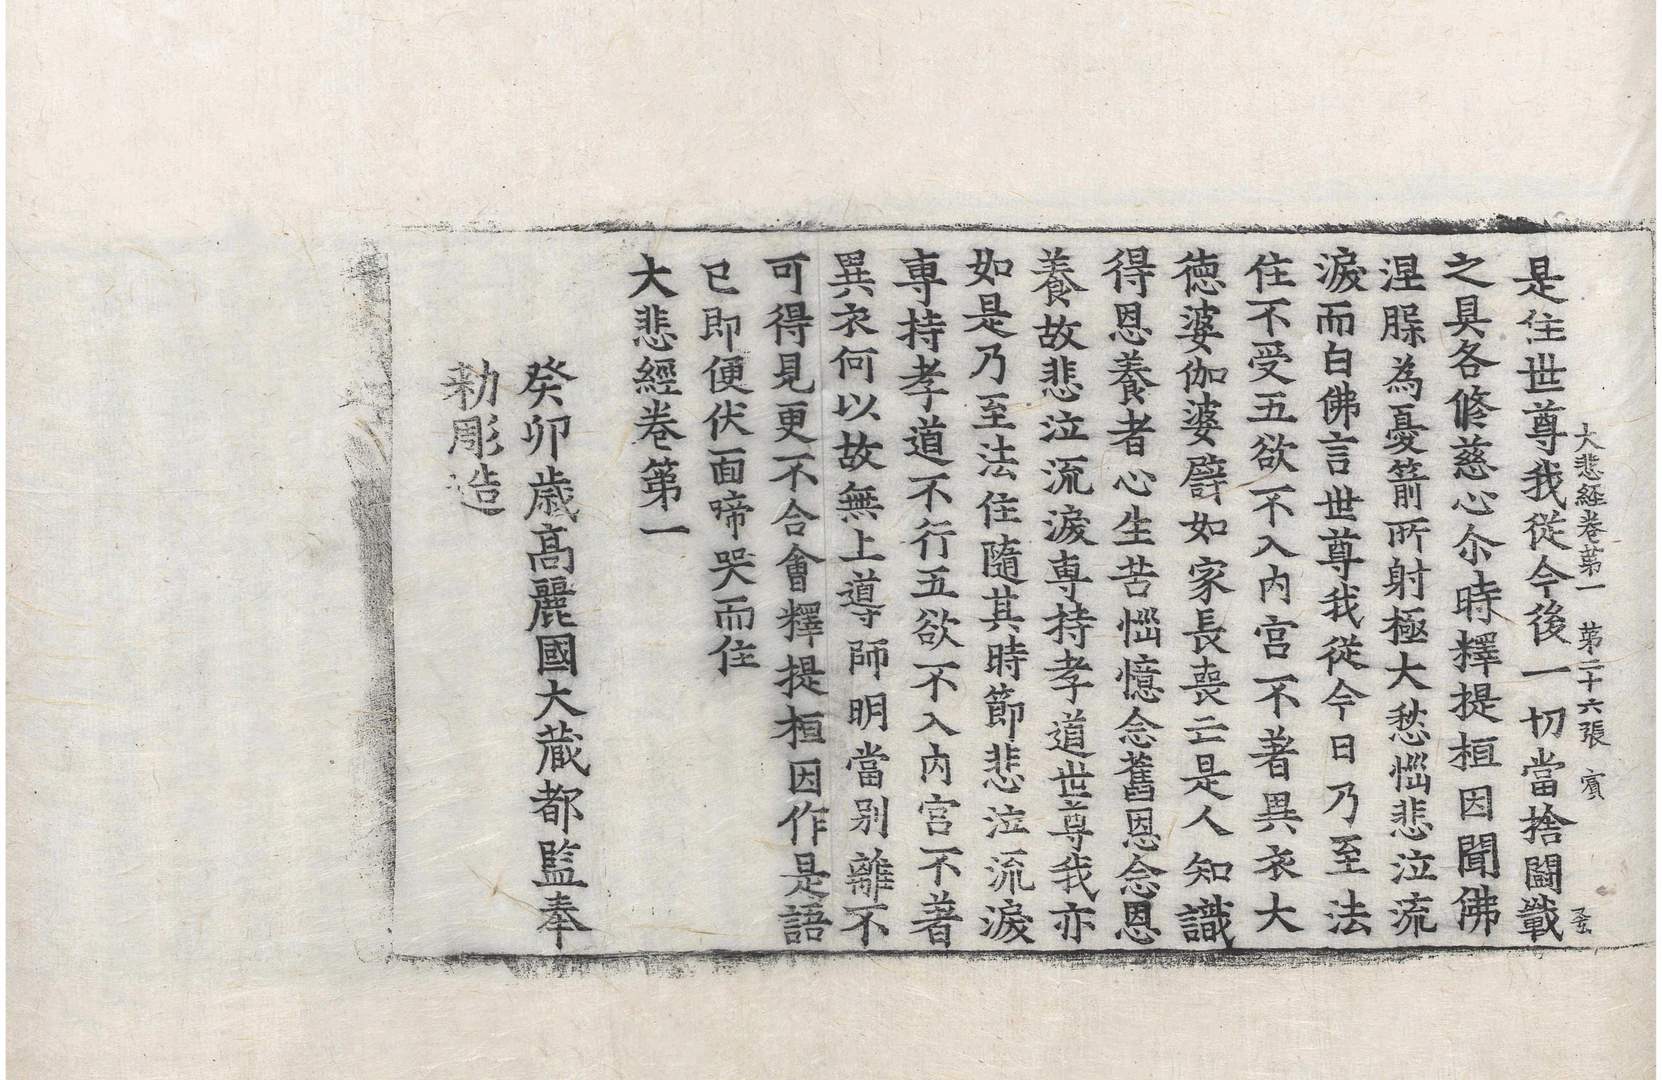 大悲経卷第一 第二十六張 賓
是住世尊我從今後一切當捨闘戰
之具各修慈心尒時釋提桓因聞佛
涅槃為憂箭所射極大愁惱悲泣流
淚而白佛言世尊我從今日乃至法
住不受五欲不入内宮不著異衣大
德婆伽婆譬如家長喪亡是人知識
得恩養者心生苦惱憶念舊恩念恩
養故悲泣流淚専持孝道世尊我亦
如是乃至法住隨其時節悲泣流淚
専持孝道不行五欲不入内宮不著
異衣何以故無上導師明當別離不
可得見更不合會釋提桓因作是語
已即便伏面啼哭而住
大悲經卷第一
癸卯歲高麗國大藏都監奉
勅彫造